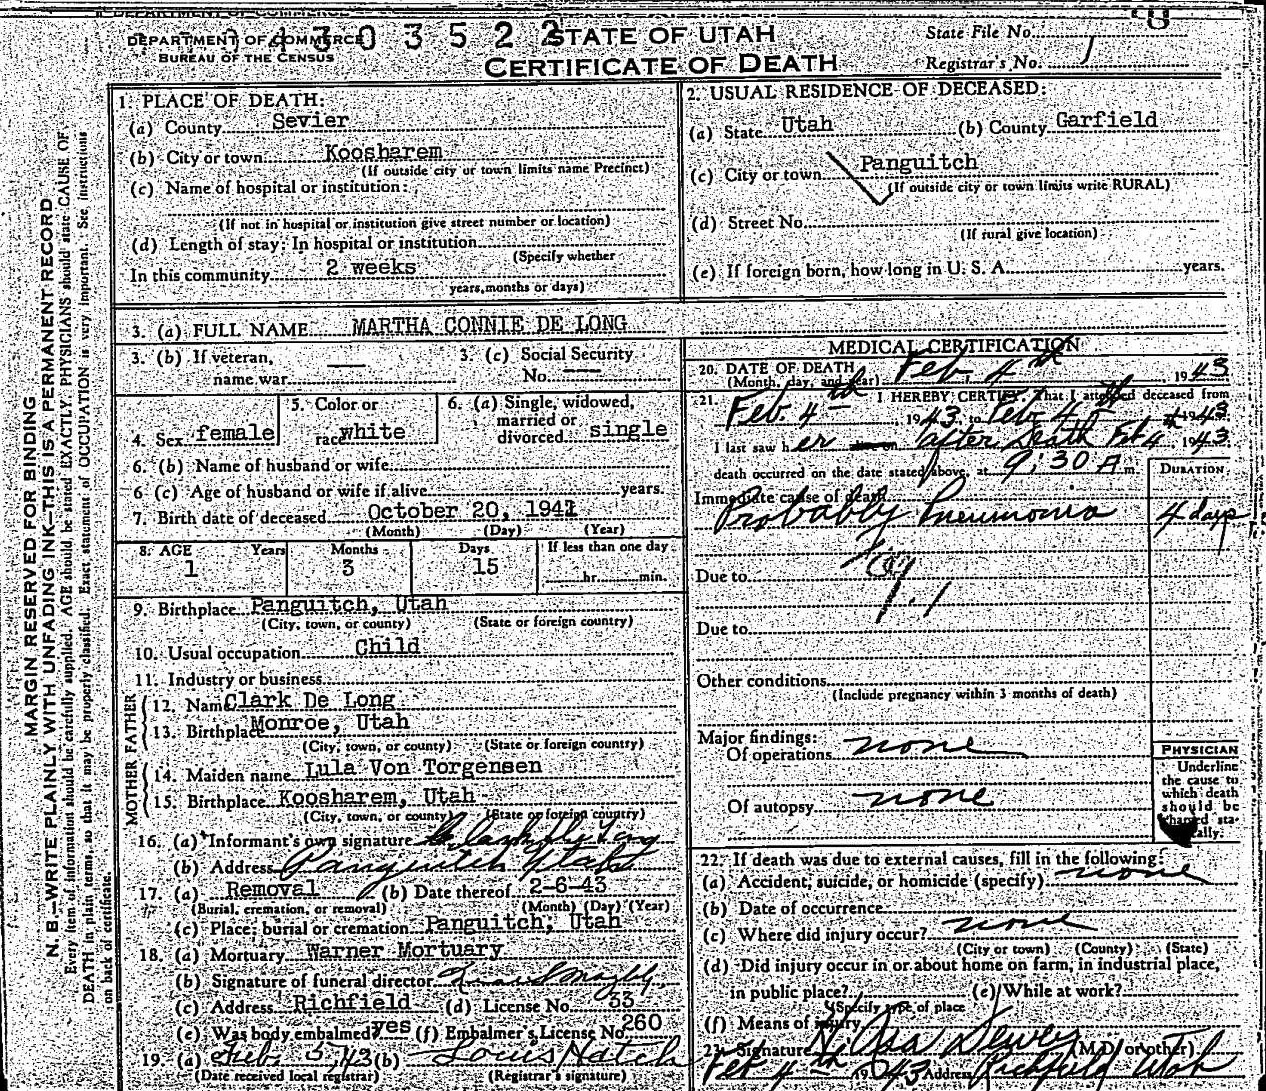 DEPARTMENT OF COMMERCE
BUREAU OF THE CENSUS
4303522
STATE OF UTAH
CERTIFICATE OF DEATH
State File No. 8
Registrar's No. 1
MARGIN RESERVED FOR BINDING
N. B.—WRITE PLAINLY WITH UNFADING INK—THIS IS A PERMANENT RECORD
Every item of information should be carefully supplied. AGE should be stated EXACTLY. PHYSICIANS should state CAUSE OF
DEATH in plain terms, so that it may be properly classified. Exact statement of OCCUPATION is very important. See instructions
on back of certificate.
1. PLACE OF DEATH:
(a) County Sevier
(b) City or town Koosharem
(If outside city or town limits name Precinct)
(c) Name of hospital or institution:
(If not in hospital or institution give street number or location)
(d) Length of stay: In hospital or institution
(Specify whether
In this community 2 weeks
years, months or days)
2. USUAL RESIDENCE OF DECEASED:
(a) State Utah (b) County Garfield
(c) City or town Panguitch
(If outside city or town limits write RURAL)
(d) Street No.
(If rural give location)
(e) If foreign born, how long in U. S. A. years.
3. (a) FULL NAME MARTHA CONNIE DE LONG
3. (b) If veteran,
name war —
3. (c) Social Security
No. —
4. Sex female
5. Color or
race white
6. (a) Single, widowed,
married or
divorced single
6. (b) Name of husband or wife
6 (c) Age of husband or wife if alive years.
7. Birth date of deceased October 20, 1941
(Month) (Day) (Year)
8. AGE Years Months Days If less than one day
1 3 15 hr. min.
9. Birthplace Panguitch, Utah
(City, town, or county) (State or foreign country)
10. Usual occupation Child
11. Industry or business
FATHER
12. Name Clark De Long
13. Birthplace Monroe, Utah
(City, town, or county) (State or foreign country)
MOTHER
14. Maiden name Lula Von Torgensen
15. Birthplace Koosharem, Utah
(City, town, or county) (State or foreign country)
16. (a) Informant's own signature Clark De Long
(b) Address Panguitch Utah
17. (a) Removal (b) Date thereof 2-6-43
(Burial, cremation, or removal) (Month) (Day) (Year)
(c) Place; burial or cremation Panguitch, Utah
18. (a) Mortuary Warner Mortuary
(b) Signature of funeral director
(c) Address Richfield (d) License No. 33
(e) Was body embalmed? yes (f) Embalmer's License No. 260
19. (a) Feb. 5, 43 (b) Louis Hatch
(Date received local registrar) (Registrar's signature)
MEDICAL CERTIFICATION
20. DATE OF DEATH
(Month, day, and year) Feb 4th 1943
21. I HEREBY CERTIFY, That I attended deceased from
Feb. 4th, 1943 to Feb 4th 1943
I last saw her after death Feb 4th 1943
death occurred on the date stated above, at 9:30 A m.
DURATION
Immediate cause of death
Probably Pneumonia 4 days
Due to
Due to
Other conditions
(Include pregnancy within 3 months of death)
Major findings:
Of operations none
Of autopsy none
PHYSICIAN
Underline
the cause to
which death
should be
charged sta-
tistically.
22. If death was due to external causes, fill in the following:
(a) Accident, suicide, or homicide (specify) none
(b) Date of occurrence
(c) Where did injury occur? none
(City or town) (County) (State)
(d) Did injury occur in or about home on farm, in industrial place,
in public place? (e) While at work?
(Specify type of place
(f) Means of injury
23. Signature Asa Dewey (M.D. or other)
Feb 4th 1943 Address Richfield Utah